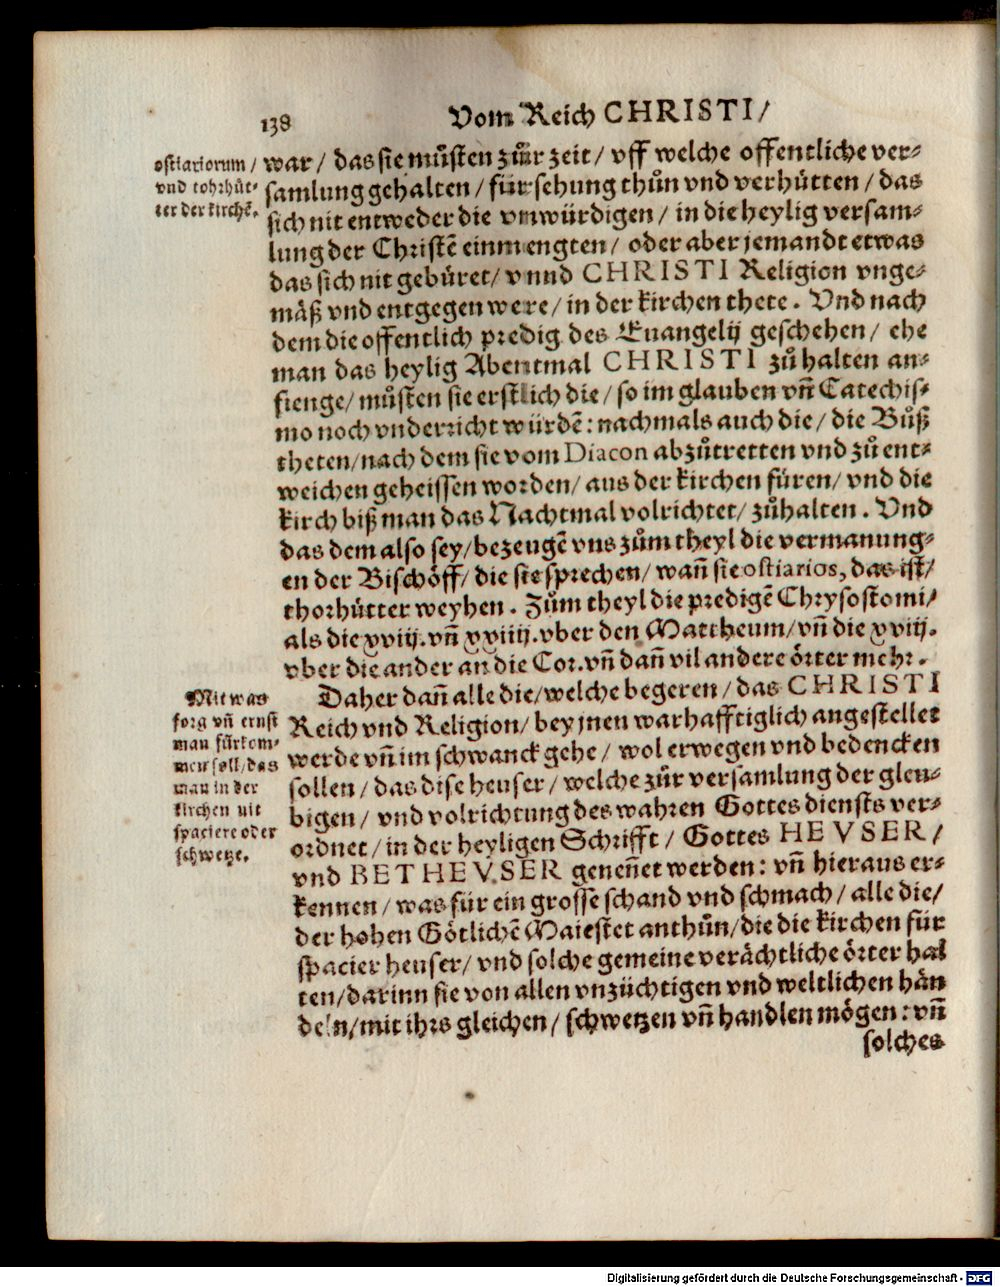 138
Vom Reich CHRISTI/
ostiariorum/
vnd tohrhüt-
ter der kirchē.
war/ das sie můsten zůr zeit/ vff welche offentliche ver-
samlung gehalten/ fürsehung thůn vnd verhütten/ das
sich nit entweder die vnwürdigen/ in die heylig versam-
lung der Christē einmengten/ oder aber jemandt etwas
das sich nit gebüret/ vnnd CHRISTI Religion vnge-
mäß vnd entgegen were/ in der kirchen thete. Vnd nach
dem die offentlich predig des Euangelij geschehen/ ehe
man das heylig Abentmal CHRISTI zů halten an-
fienge/ můsten sie erstlich die/ so im glauben vñ Catechis-
mo noch vnderricht würdē: nachmals auch die/ die Bůß
theten/ nach dem sie vom Diacon abzůtretten vnd zů ent-
weichen geheissen worden/ aus der kirchen füren/ vnd die
kirch biß man das Nachtmal volrichtet/ zůhalten. Vnd
das dem also sey/ bezeugē vns zům theyl die vermanung-
en der Bischöff/ die sie sprechen/ wañ sie ostiarios, das ist/
thorhütter weyhen. Zům theyl die predigē Chrysostomi/
als die xviij. vñ xxiiij. vber den Mattheum/ vñ die xviij.
vber die ander an die Cor. vñ dañ vil andere örter mehr.
Mit was
sorg vñ ernst
man fürkom-
men soll/ das
man in der
kirchen nit
spaciere oder
schwetze.
Daher dañ alle die/ welche begeren/ das CHRISTI
Reich vnd Religion/ bey jnen warhafftiglich angestellet
werde vñ im schwanck gehe/ wol erwegen vnd bedencken
sollen/ das dise heuser/ welche zůr versamlung der gleu-
bigen/ vnd volrichtung des wahren Gottes diensts ver-
ordnet/ in der heyligen Schrifft/ Gottes HEVSER/
vnd BETHEVSER geneñet werden: vñ hieraus er-
kennen/ was für ein grosse schand vnd schmach/ alle die/
der hohen Götlichē Maiestet anthůn/ die die kirchen für
spacier heuser/ vnd solche gemeine verächtliche örter hal
ten/ darinn sie von allen vnzüchtigen vnd weltlichen hän
deln/ mit ihrs gleichen/ schwetzen vñ handlen mögen: vñ
solches
Digitalisierung gefördert durch die Deutsche Forschungsgemeinschaft - DFG